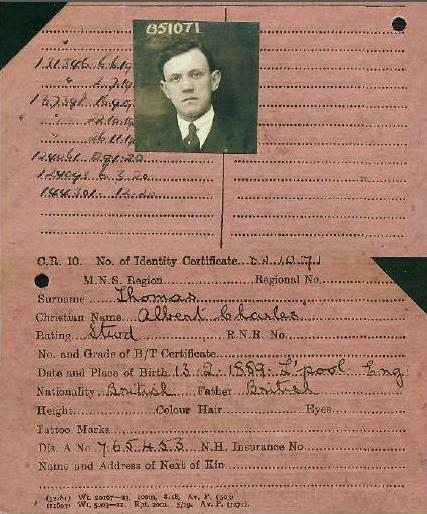 851071
131346 6.6.19
" 2.7.19
157341 15.9.19
" 22.10.19
" 26.11.19
124061 29.1.20
124093 6.3.20
144301 12.20
C.R. 10. No. of Identity Certificate 851071
M.N.S. Region Regional No.
Surname Thomas
Christian Name Albert Charles
Rating Stwd R.N.R. No.
No. and Grade of B/T Certificate
Date and Place of Birth 13.2.1889 L'pool Eng
Nationality British Father British
Height Colour Hair Eyes
Tattoo Marks
Dis. A No. 765453 N.H. Insurance No.
Name and Address of Next of Kin
Wt. 20167—23. 100m. 8/18. Av. P.
Wt. 5003—11. Rpt. 200m. 5/19. Av. P.